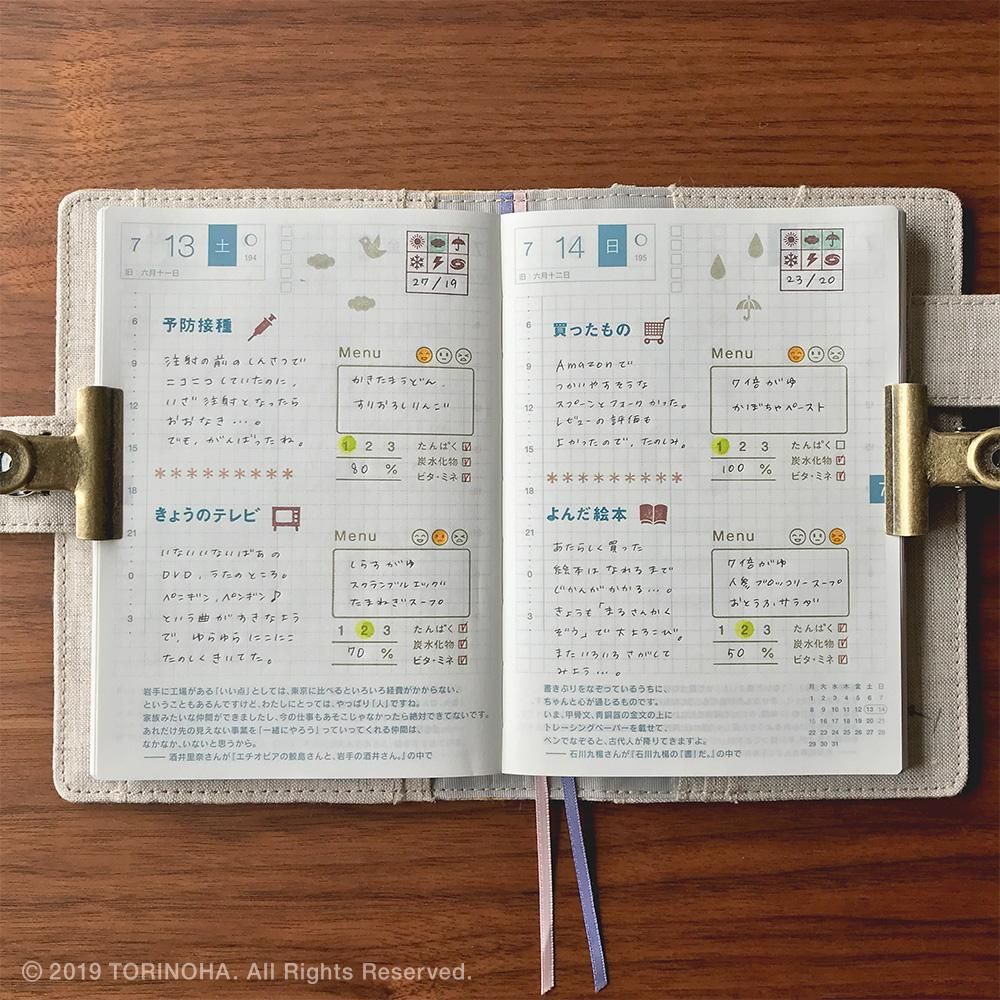 7 13 土
194
旧 六月十一日
27/19
6
9
12
15
18
21
0
3
予防接種
注射の前のしんさつで
ニコニコしていたのに、
いざ注射となったら
おおなき…。
でも、がんばったね。
Menu
かきたまうどん、
すりおろしりんご
1 2 3
80 %
たんぱく
炭水化物
ビタ・ミネ
きょうのテレビ
いないいないばあの
DVD、うたのところ。
ペンギン、ペンギン♪
という曲がすきなよう
で、ゆらゆらにこにこ
たのしくきいてた。
Menu
しらすがゆ
スクランブルエッグ
たまねぎスープ
1 2 3
70 %
たんぱく
炭水化物
ビタ・ミネ
岩手に工場がある「いい点」としては、東京に比べるといろいろ経費がかからない、
ということもあるんですけど、わたしにとっては、やっぱり「人」ですね。
家族みたいな仲間ができましたし、今の仕事もあそこじゃなかったら絶対できてないです。
あれだけ先の見えない事業を「一緒にやろう」っていってくれる仲間は、
なかなか、いないと思うから。
——酒井里奈さんが『エチオピアの鮫島さんと、岩手の酒井さん。』の中で
7 14 日
195
旧 六月十二日
23/20
6
9
12
15
18
21
0
3
買ったもの
Amazonで
つかいやすそうな
スプーンとフォークかった。
レビューの評価も
よかったので、たのしみ。
Menu
7倍がゆ
かぼちゃペースト
1 2 3
100 %
たんぱく
炭水化物
ビタ・ミネ
よんだ絵本
あたらしく買った
絵本は なれるまで
じかんがかかる…。
きょうも「まるさんかく
ぞう」で大よろこび。
またいろいろさがして
みよう…。
Menu
7倍がゆ
人参ブロッコリースープ
おとうふサラダ
1 2 3
50 %
たんぱく
炭水化物
ビタ・ミネ
7
書きぶりをなぞっているうちに、
ちゃんと心が通じるものです。
いま、甲骨文、青銅器の金文の上に
トレーシングペーパーを載せて、
ペンでなぞると、古代人が降りてきますよ。
——石川九楊さんが『石川九楊の「書」だ。』の中で
月 火 水 木 金 土 日
1 2 3 4 5 6 7
8 9 10 11 12 13 14
15 16 17 18 19 20 21
22 23 24 25 26 27 28
29 30 31
© 2019 TORINOHA. All Rights Reserved.